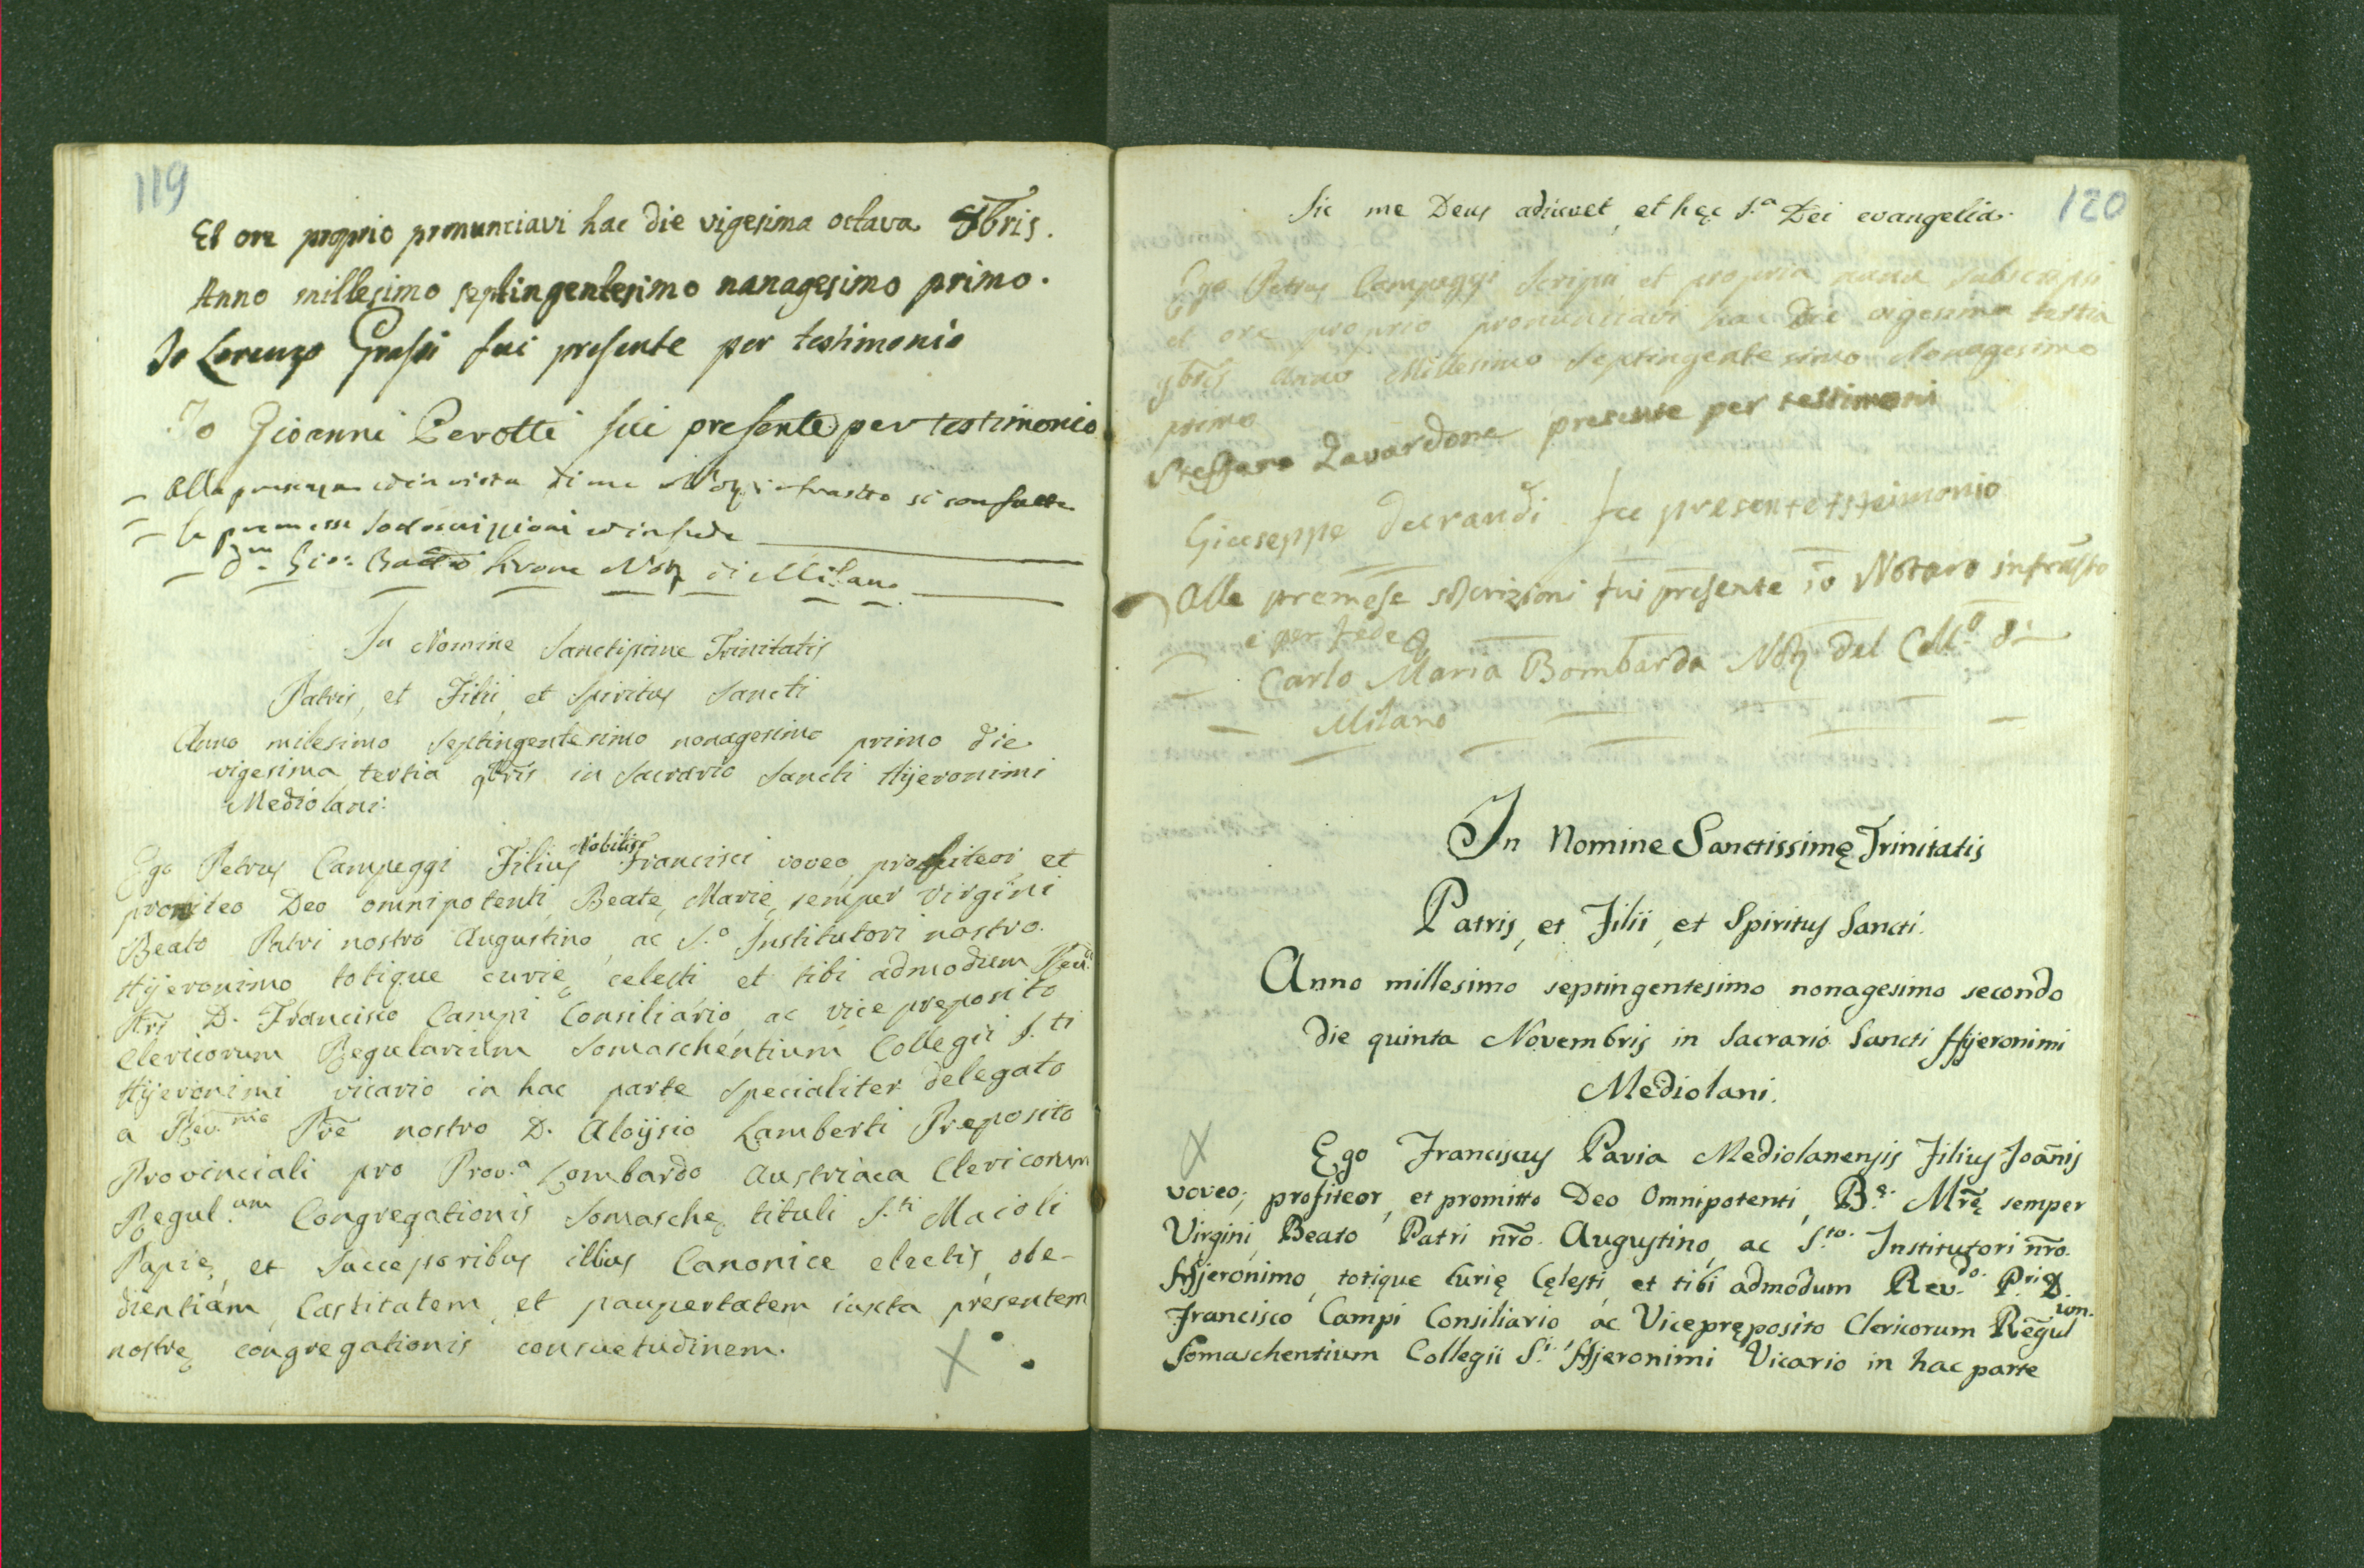 119
Et ore proprio pronunciavi hac die vigesima octava 8bris.
Anno millesimo septingentesimo nanagesimo primo.
Io Lorenzo Grassi fui presente per testimonio
Io Gioanni Perotti fui presente per testimonio
Alla presenza ed in vista di me Noṛ infrascritto si son fatte
le premesse sottoscrizioni ed in fede
Gio: Batta Noṛ di Milano
In Nomine Sanctissime Trinitatis
Patris, et Filii, et Spiritus Sancti
Anno milesimo septingentesimo nonagesimo primo die
vigesima tertia 9bris in Sacrario Sancti Hyeronimi
Mediolani:
Ego Petrus Campeggi Filius Nobilis Francisci voveo, profiteor, et
promiteo Deo omnipotenti, Beatę Marię semper Virgini
Beato Patri nostro Augustino, ac S.o Institutori nostro
Hyeronimo totique curię celesti et tibi admodum Rev.
Pri D. Francisco Campi Consiliario, ac vice preposito
Clericorum Regularium Somaschentium Collegii S.ti
Hyeronimi vicario in hac parte specialiter delegato
a Rev.mo Pre nostro D. Aloysio Lamberti Preposito
Provinciali pro Prov.a Lombardo Austriaca Clericorum
Regul.um Congregationis Somaschę tituli S.ti Maioli
Papię, et Successoribus illius Canonice electis, obe-
dientiam, Castitatem, et paupertatem iuxta presentem
nostrę congregationis consuetudinem.
120
Sic me Deus adiuvet, et hęc S.a Dei evangelia.
Ego Petrus Campeggi Scripsi et propria manu subscripsi
et ore proprio pronuntiavi hac die vigesima tertia
9bris Anno Millesimo Septingentesimo Nonagesimo
primo
Steffano Zavardone presente per testimoni
Giuseppe Decrandi fu presente testimonio
Alle premesse scrizioni fui presente io Notaro infrasto
e per fede
Carlo Maria Bombarda Noṛ del Coll.o di
Milano
In Nomine Sanctissimę Trinitatis
Patris, et Filii, et Spiritus Sancti.
Anno millesimo septingentesimo nonagesimo secondo
die quinta Novembris in Sacrario Sancti Hyeronimi
Mediolani.
Ego Franciscus Pavia Mediolanensis Filius Joanis
voveo, profiteor, et promitto Deo Omnipotenti, B.ę Mrę semper
Virgini, Beato Patri nro. Augustino, ac S.to. Institutori nro.
Hyeronimo, totique Curię Cęlesti, et tibi admodum Rev.do. P.ri D.
Francisco Campi Consiliario ac Vicepręposito Clericorum Regul.um.
Somaschentium Collegii S.i Hyeronimi Vicario in hac parte